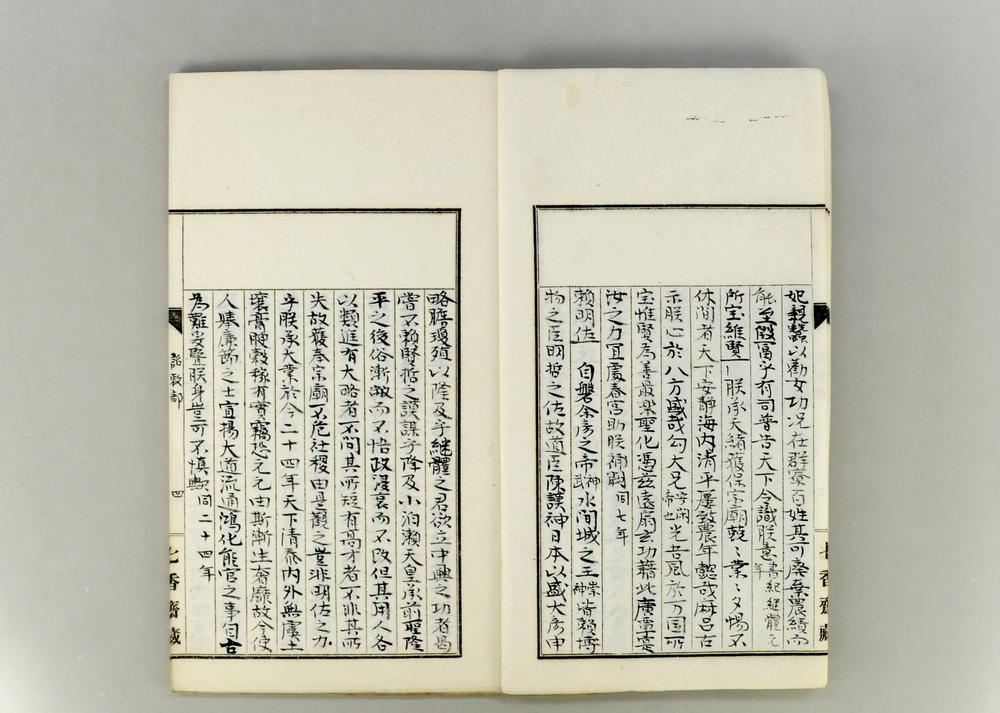 妃親蠶以勸女功況在群寮百姓其可棄農績而
能至殷富乎有司普告天下令識朕意書紀継體元年
所宝維賢 朕承天緒獲保宗廟兢〻業〻夕惕不
休間者天下安静海内清平屡致農年懿哉麻呂古
示朕心於八方盛哉勾大兄安閑帝也光吾風於万国所
宝惟賢為善最楽聖化憑茲遠扇玄功藉此廣
汝之力宜處春宮助朕補闕同七年
頼明佐 自磐余彦之帝神武水間城之王崇神皆頼博
物之臣明哲之佐故道臣陳謨神日本以盛大彦申
略瞻瓊殖以隆及乎継體之君欲立中興之功者曷
嘗不頼賢哲之謨謀乎降及小泊瀬天皇承前聖隆
平之後俗漸蔽而不悟政浸衰而不改但其用人各
以類進有大略者不問其所短有高才者不非其所
失故獲奉宗廟不危社稷由是観之豈非明佐之力
乎朕承大業於今二十四年天下清泰内外無虞土
壌膏腴穀稼有實竊恐元元由斯漸生奢靡故令使
人挙廉節之士宣揚大道流通鴻化能官之事自古
為難爰曁朕身豈可不慎歟同二十四年
詔敕部
四
七香齋蔵
七香齋蔵